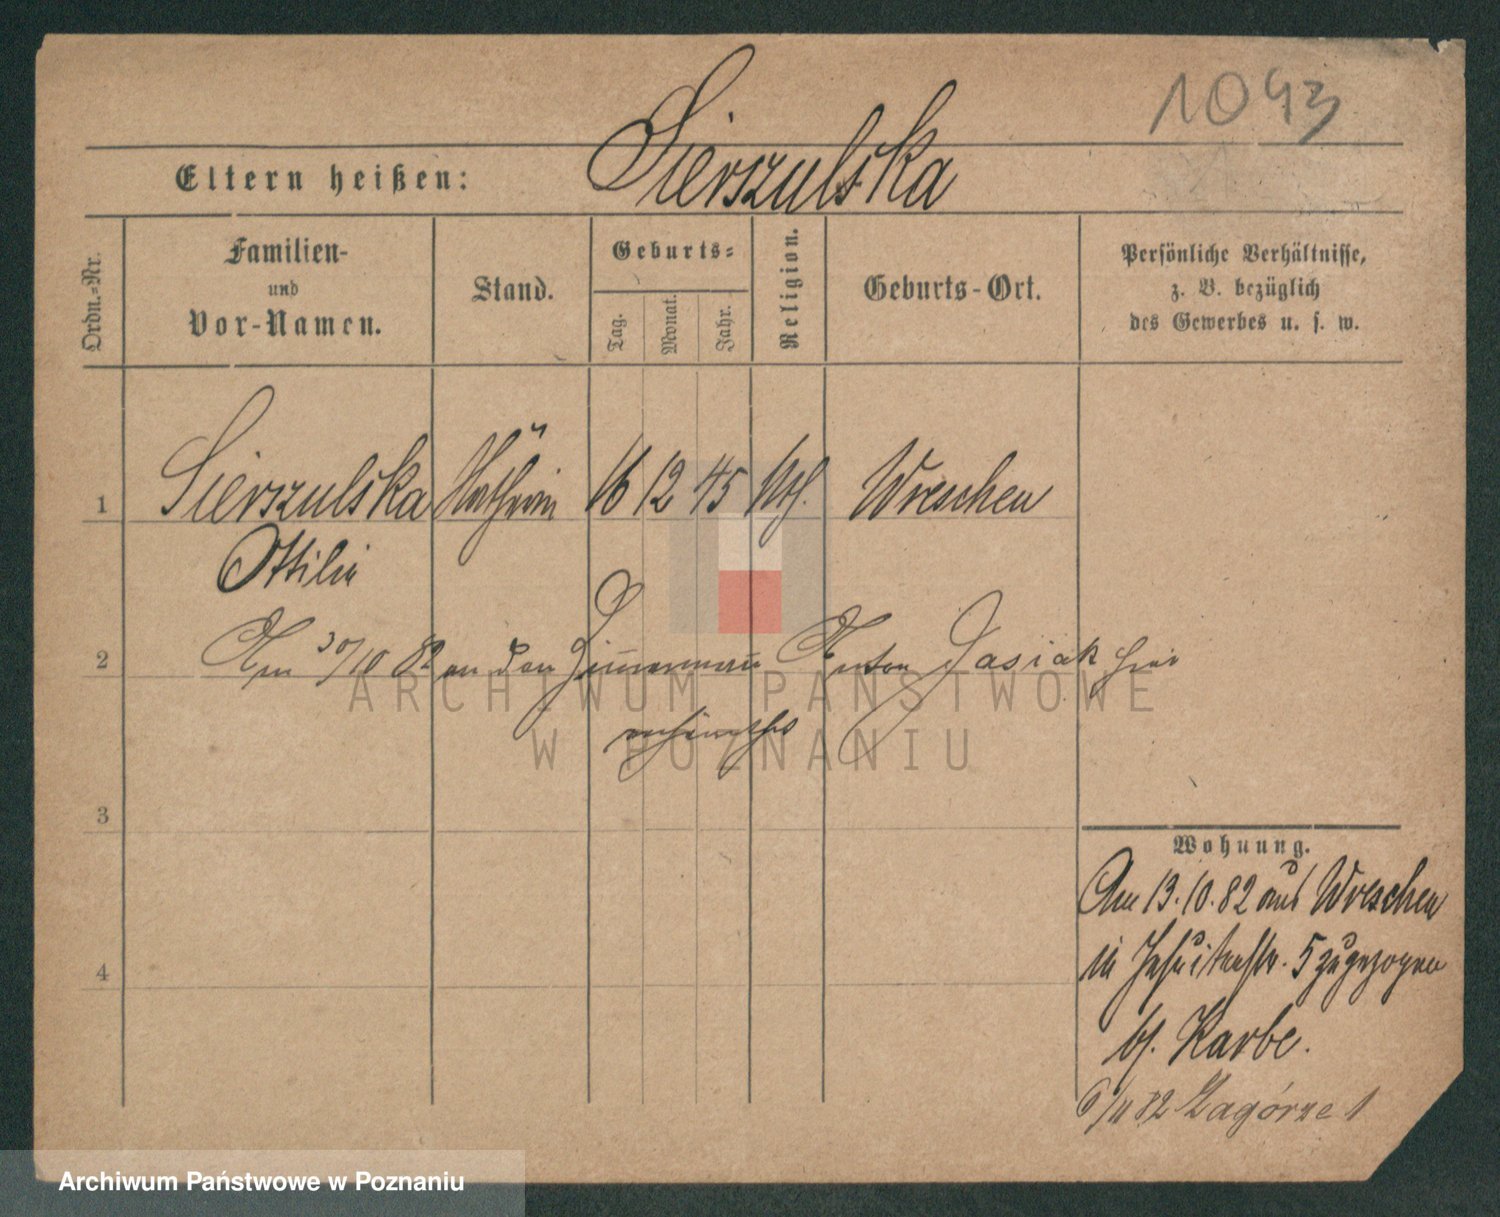 1043
Eltern heißen: Sierszulska
Ordn.-Nr.
Familien-
und
Vor-Namen.
Stand.
Geburts-
Tag.
Monat.
Jahr.
Religion.
Geburts-Ort.
Persönliche Verhältnisse,
z. B. bezüglich
des Gewerbes u. s. w.
1 Sierszulska 16 12 45 Wreschen
Ottilie
2 Am 30/10 82 an den Zimmermann Anton Jasiak hier
3
4
Wohnung.
Am 13.10.82 aus Wreschen
in Jesuitenstr. 5 zugezogen
bei Karbe.
6/11 82 Zagórze 1
ARCHIWUM PAŃSTWOWE
W POZNANIU
Archiwum Państwowe w Poznaniu